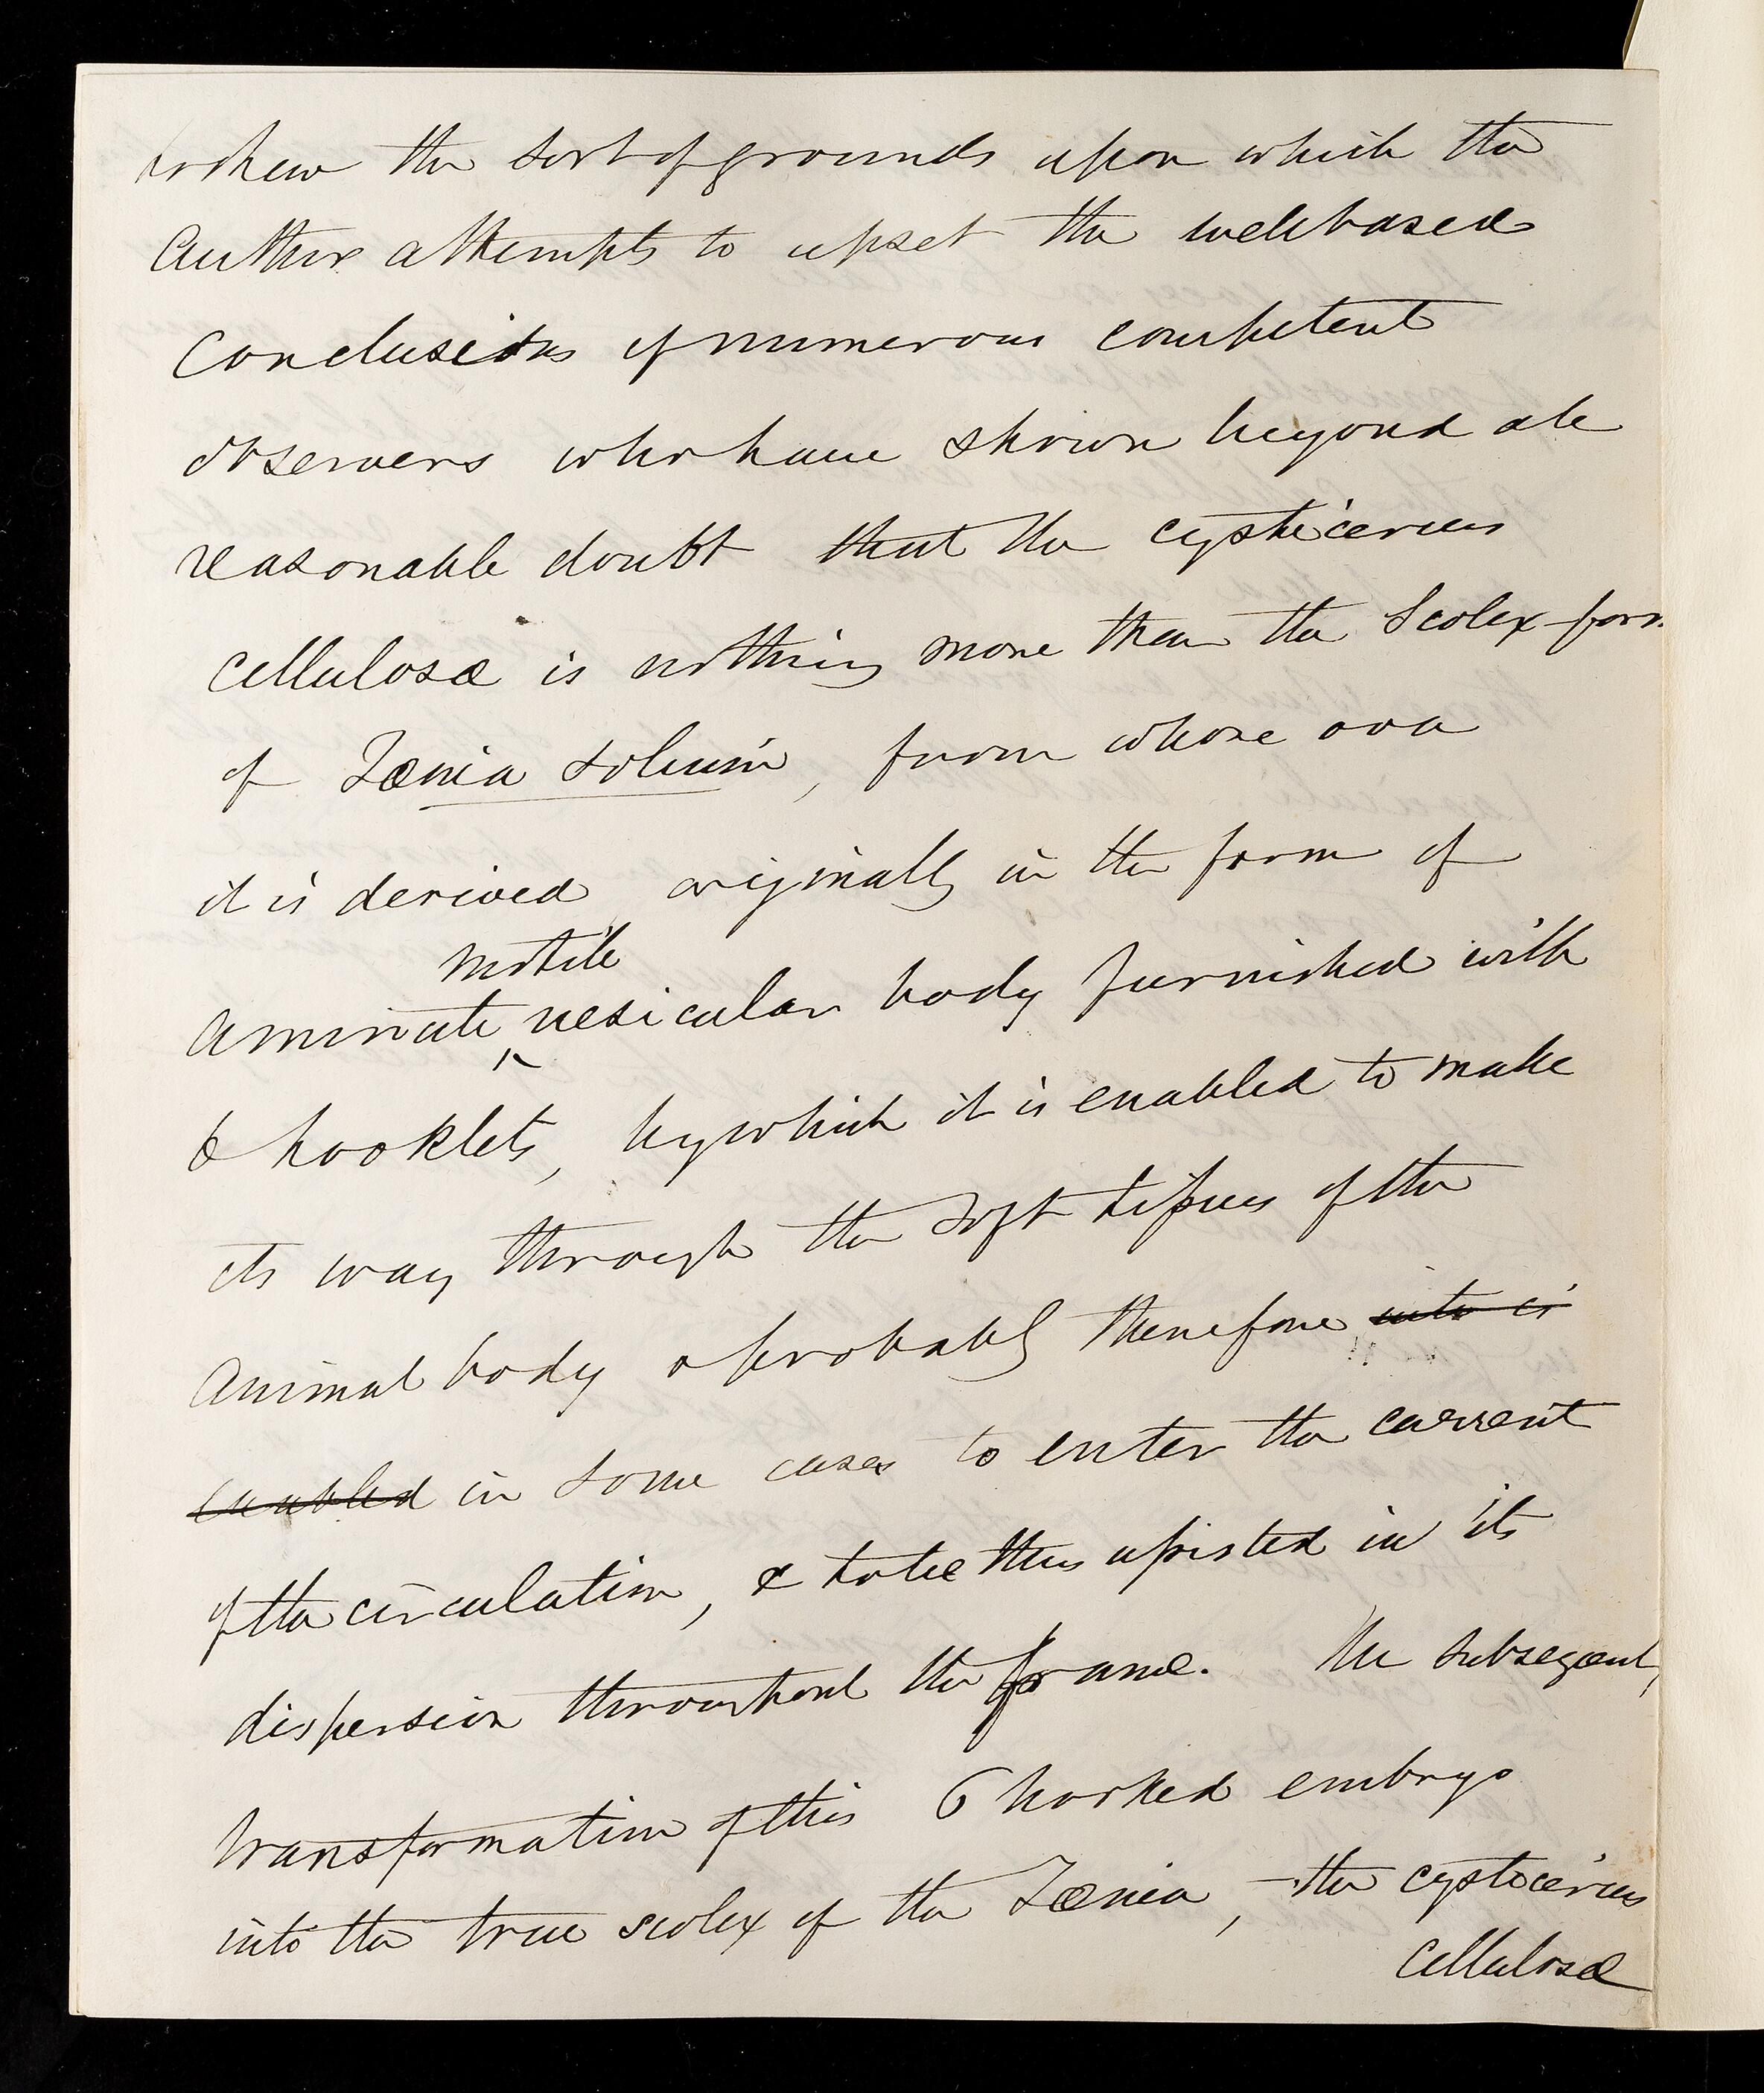 to shew the sort of grounds upon which the
Author attempts to upset the well based
Conclusions of numerous competent
observers who have shown beyond all
reasonable doubt that the cysticercus
cellulosæ is nothing more than the Scolex-form
of Tænia solium, from whose ova
it is derived originally in the form of
motile
a minute vesicular body furnished with
6 hooklets, by which it is enabled to make
its way through the soft tissues of the
Animal body & probably therefore into ci
enabled in some cases to enter the current
of the circulation, & to be thus assisted in its
dispersion throughout the frame. The subsequent,
transformation of this 6 hooked embryo
into the true scolex of the Tænia, - the cysticercus
cellulosæ